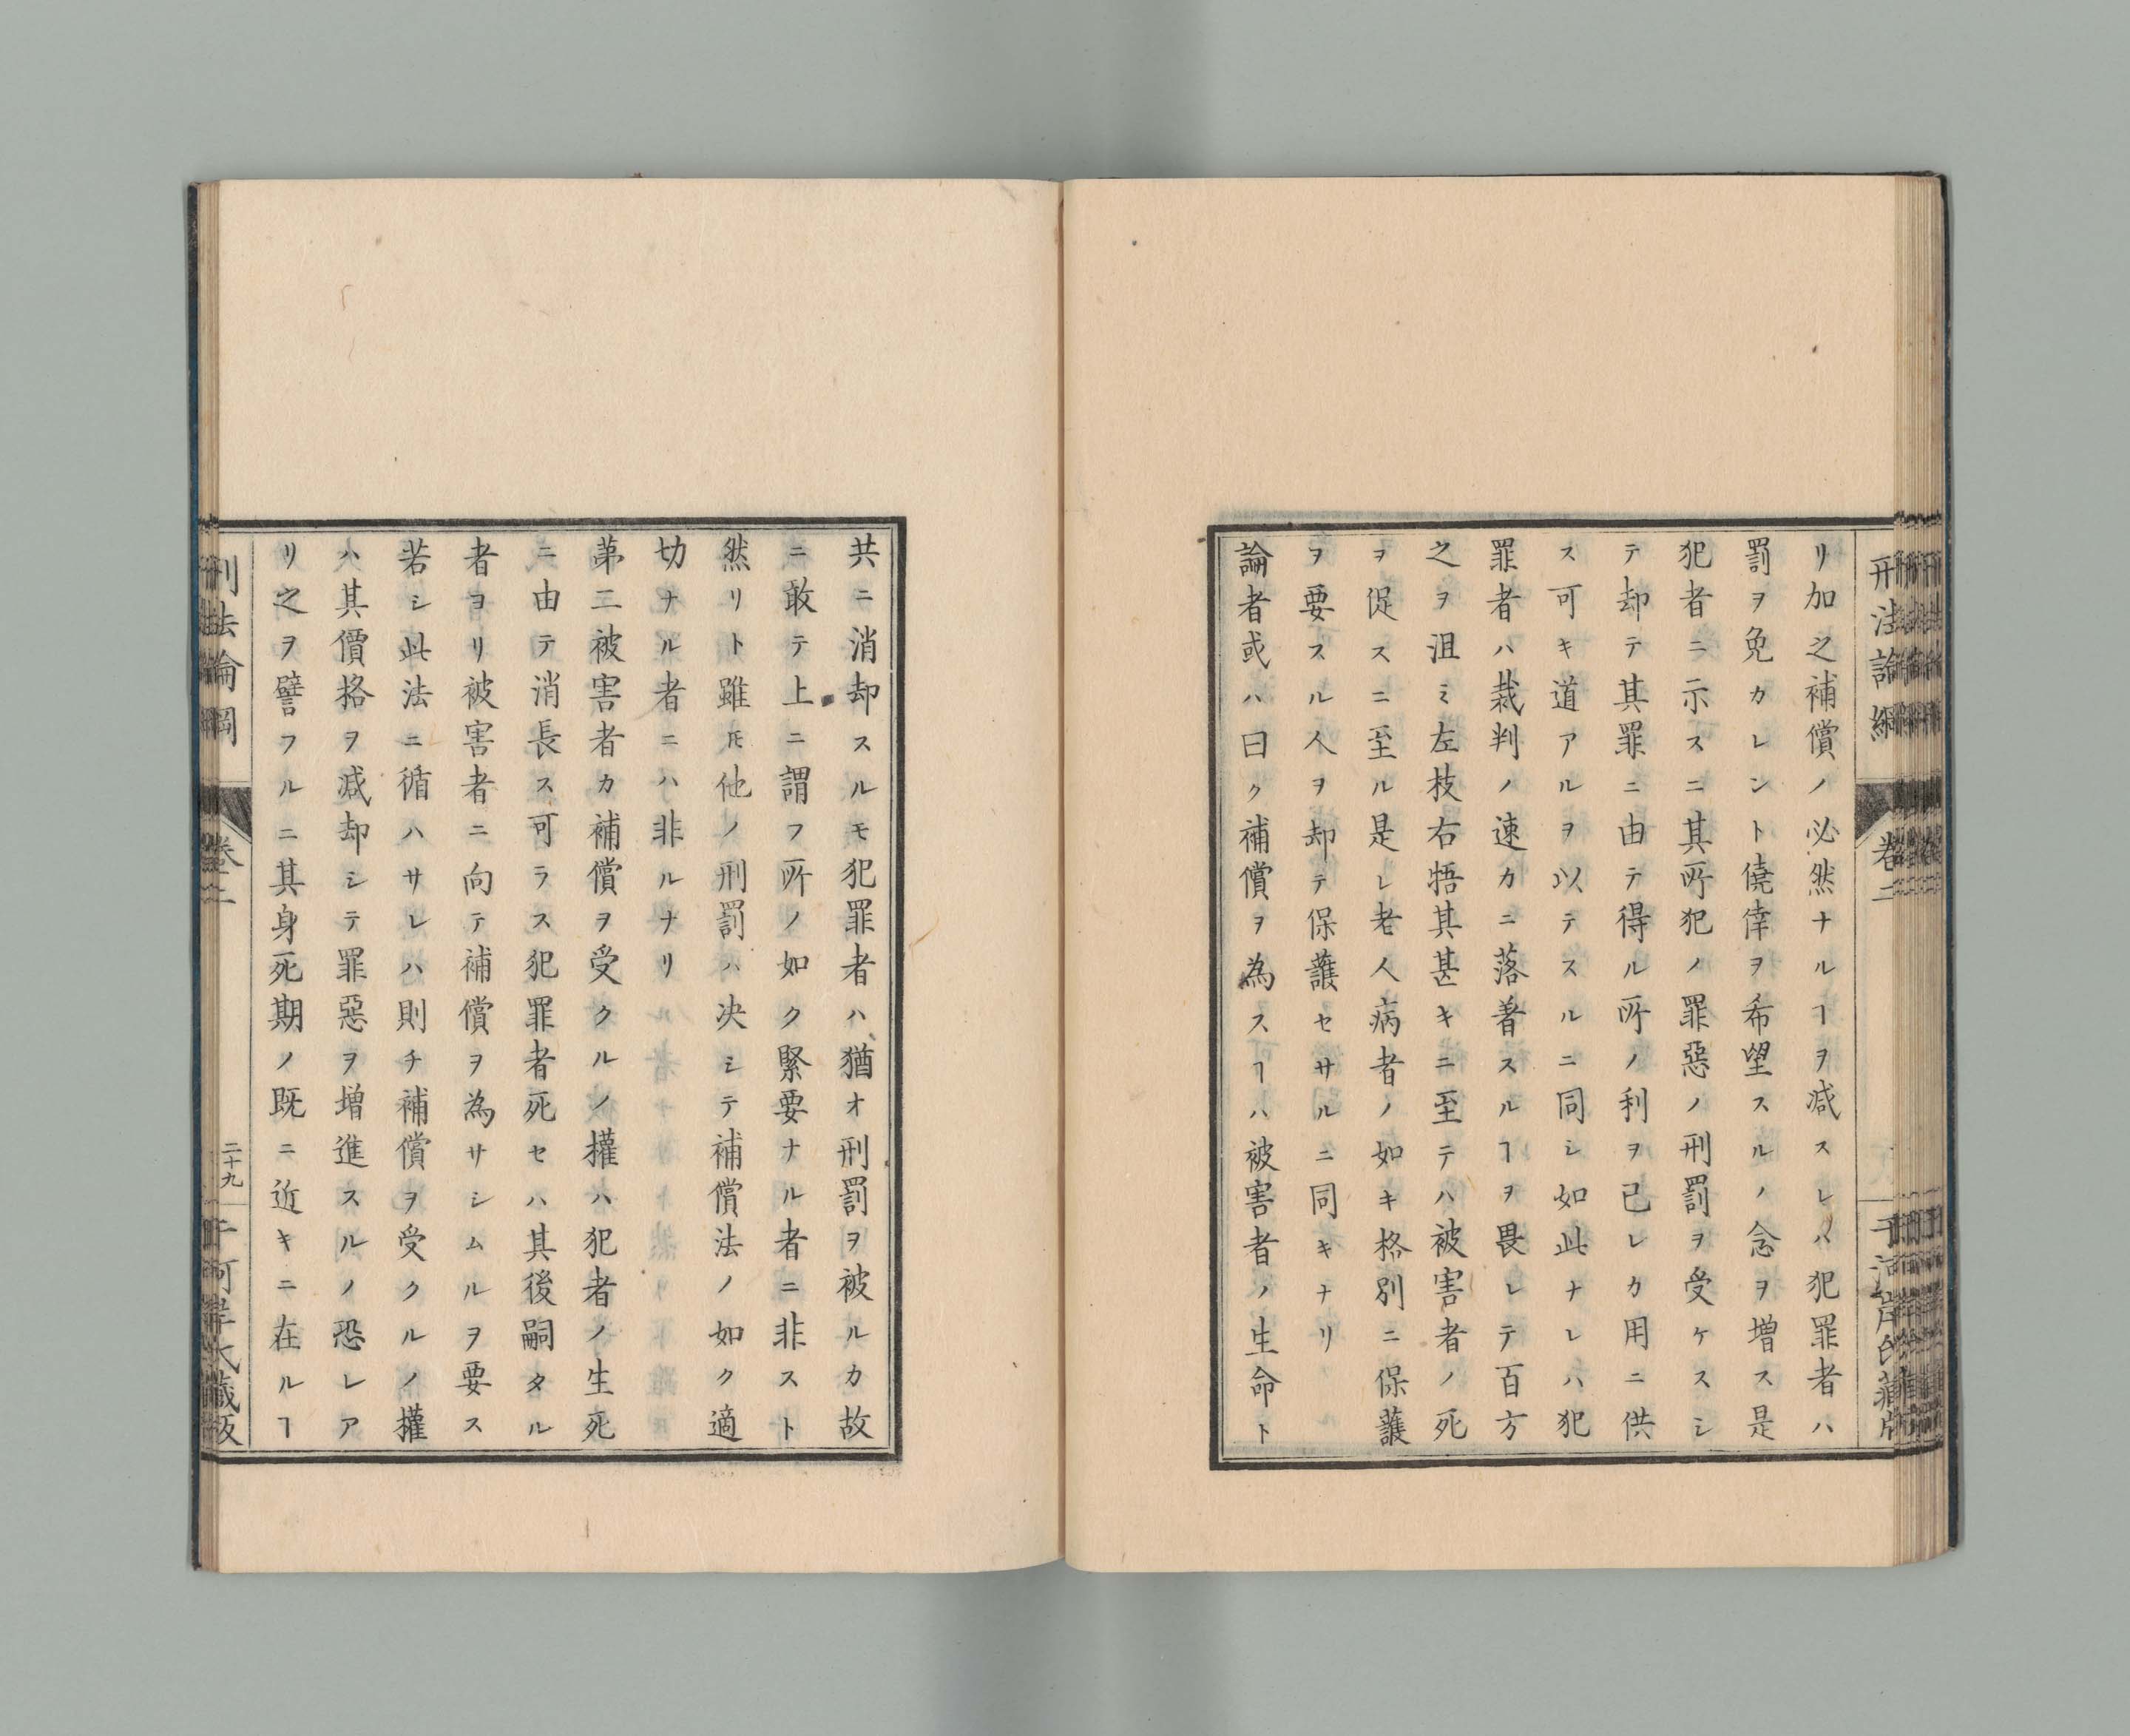 リ加之補償ノ必然ナルヿヲ減スレハ犯罪者ハ
罰ヲ免カレント僥倖ヲ希望スルノ念ヲ増ス是
犯者ニ示スニ其所犯ノ罪惡ノ刑罰ヲ受ケスシ
テ却テ其罪ニ由テ得ル所ノ利ヲ己レカ用ニ供
ス可キ道アルヲ以テスルニ同シ如此ナレハ犯
罪者ハ裁判ノ速カニ落著スルヿヲ畏レテ百方
之ヲ沮ミ左枝右梧其甚キニ至テハ被害者ノ死
ヲ促スニ至ル是レ老人病者ノ如キ格別ニ保護
ヲ要スル人ヲ却テ保護セサルニ同キナリ
論者或ハ曰ク補償ヲ為スヿハ被害者ノ生命ト
共ニ消却スルモ犯罪者ハ猶オ刑罰ヲ被ルカ故
ニ敢テ上ニ謂フ所ノ如ク緊要ナル者ニ非スト
然リト雖𪜈他ノ刑罰ハ决シテ補償法ノ如ク適
切ナル者ニハ非ルナリ
苐二被害者カ補償ヲ受クルノ權ハ犯者ノ生死
ニ由テ消長ス可ラス犯罪者死セハ其後嗣タル
者ヨリ被害者ニ向テ補償ヲ為サシムルヲ要ス
若シ此法ニ循ハサレハ則チ補償ヲ受クルノ權
ハ其價格ヲ減却シテ罪惡ヲ増進スルノ恐レア
リ之ヲ譬フルニ其身死期ノ既ニ近キニ在ルヿ
刑法論綱
卷二
二十九
千河岸氏藏版